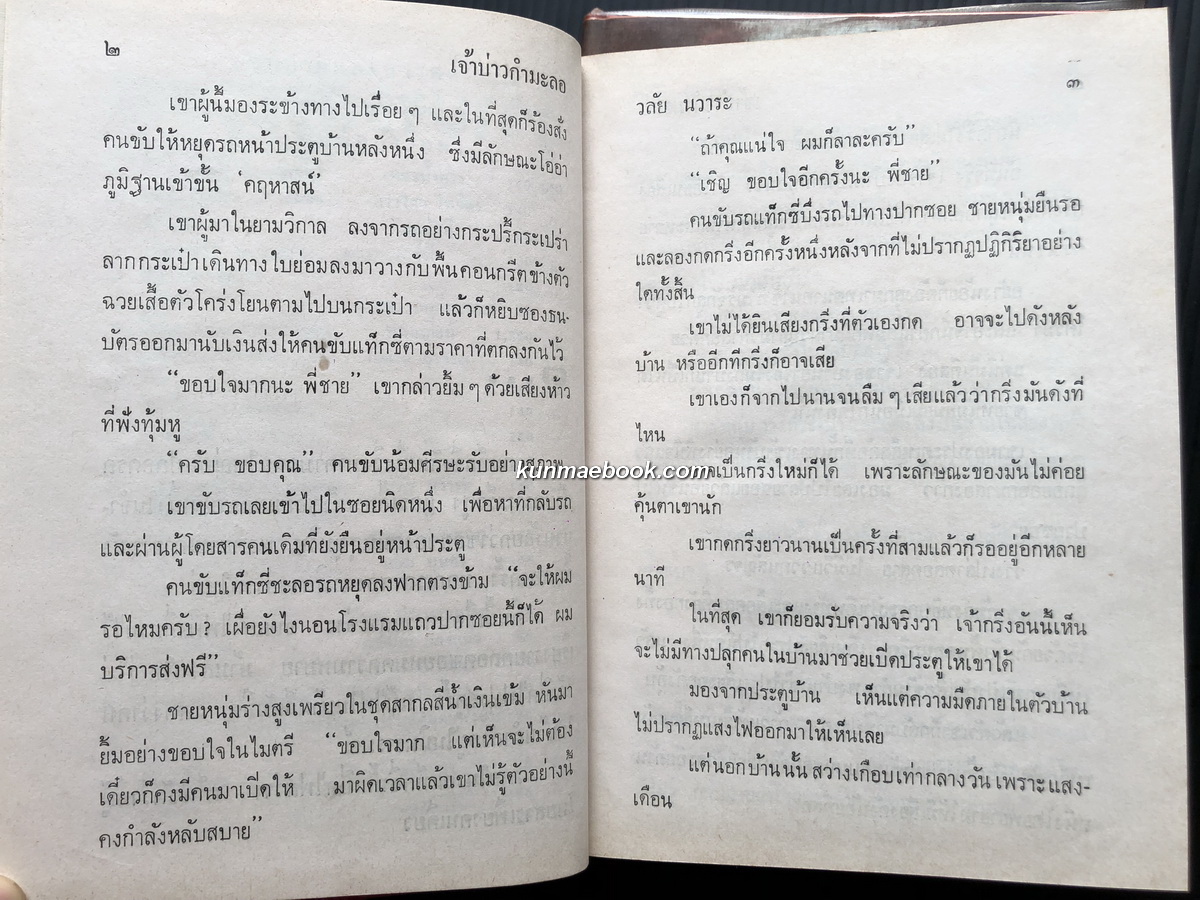 ๒
เจ้าบ่าวกำมะลอ
เขาผู้นี้มองระข้างทางไปเรื่อย ๆ และในที่สุดก็ร้องสั่ง
คนขับให้หยุดรถหน้าประตูบ้านหลังหนึ่ง ซึ่งมีลักษณะโอ่อ่า
ภูมิฐานเข้าขั้น ‘คฤหาสน์’
เขาผู้มาในยามวิกาล ลงจากรถอย่างกระปรี้กระเปร่า
ลากกระเป๋าเดินทางใบย่อมลงมาวางกับพื้นคอนกรีตข้างตัว
ฉวยเสื้อตัวโคร่งโยนตามไปบนกระเป๋า แล้วก็หยิบซองธน-
บัตรออกมานับเงินส่งให้คนขับแท็กซี่ตามราคาที่ตกลงกันไว้
“ขอบใจมากนะ พี่ชาย” เขากล่าวยิ้ม ๆ ด้วยเสียงห้าว
ที่ฟังทุ้มหู
“ครับ ขอบคุณ” คนขับน้อมศีรษะรับอย่างสุภาพ
เขาขับรถเลยเข้าไปในซอยนิดหนึ่ง เพื่อหาที่กลับรถ
และผ่านผู้โดยสารคนเดิมที่ยังยืนอยู่หน้าประตู
คนขับแท็กซี่ชะลอรถหยุดลงฟากตรงข้าม “จะให้ผม
รอไหมครับ ? เผื่อยังไงนอนโรงแรมแถวปากซอยนี้ก็ได้ ผม
บริการส่งฟรี”
ชายหนุ่มร่างสูงเพรียวในชุดสากลสีน้ำเงินเข้ม หันมา
ยิ้มอย่างขอบใจในไมตรี “ขอบใจมาก แต่เห็นจะไม่ต้อง
เดี๋ยวก็คงมีคนมาเปิดให้ มาผิดเวลาแล้วเขาไม่รู้ตัวอย่างนี้
คงกำลังหลับสบาย”
๓
วลัย นวาระ
“ถ้าคุณแน่ใจ ผมก็ลาละครับ”
“เชิญ ขอบใจอีกครั้งนะ พี่ชาย”
คนขับรถแท็กซี่บึ่งรถไปทางปากซอย ชายหนุ่มยืนรอ
และลองกดกริ่งอีกครั้งหนึ่งหลังจากที่ไม่ปรากฏปฏิกิริยาอย่าง
ใดทั้งสิ้น
เขาไม่ได้ยินเสียงกริ่งที่ตัวเองกด อาจจะไปดังหลัง
บ้าน หรืออีกทีกริ่งก็อาจเสีย
เขาเองก็จากไปนานจนลืม ๆ เสียแล้วว่ากริ่งมันดังที่
ไหน
kunmaebook.com
เป็นกริ่งใหม่ก็ได้ เพราะลักษณะของมันไม่ค่อย
คุ้นตาเขานัก
เขากดกริ่งยาวนานเป็นครั้งที่สามแล้วก็รออยู่อีกหลาย
นาที
ในที่สุด เขาก็ยอมรับความจริงว่า เจ้ากริ่งอันนี้เห็น
จะไม่มีทางปลุกคนในบ้านมาช่วยเปิดประตูให้เขาได้
มองจากประตูบ้าน เห็นแต่ความมืดภายในตัวบ้าน
ไม่ปรากฏแสงไฟออกมาให้เห็นเลย
แต่นอกบ้านนั้น สว่างเกือบเท่ากลางวัน เพราะแสง-
เดือน